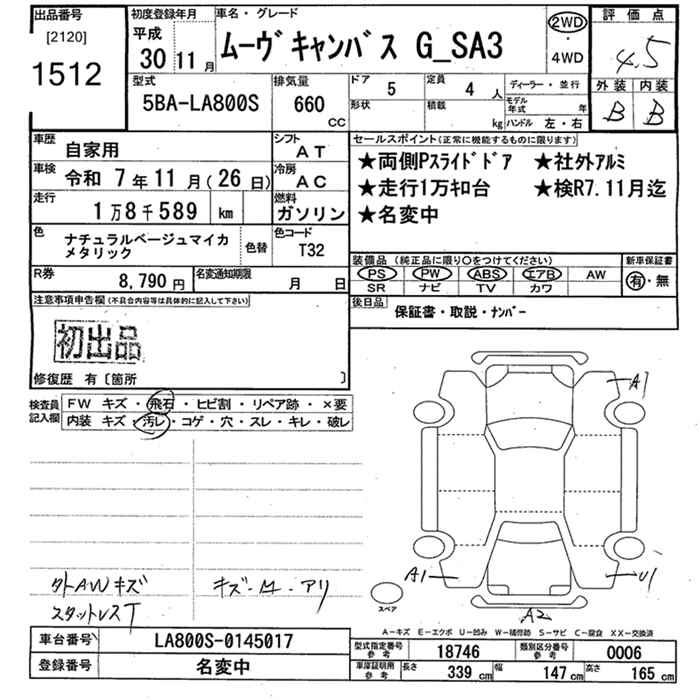 出品番号
[2120]
1512
初度登録年月
平成
30 11月
車名・グレード
ムーヴキャンバス G_SA3
2WD
・
4WD
評価点
4.5
外装 内装
B B
型式
5BA-LA800S
排気量
660
CC
ドア 5
形状
定員 4 人
積載 kg
ディーラー・並行
モデル年式 年
ハンドル 左・右
車歴 自家用
シフト AT
車検 令和 7年11月(26日)
冷房 AC
走行 1万8千589 km
燃料 ガソリン
色 ナチュラルベージュマイカ
メタリック
色替
色コード T32
R券 8,790 円
名変通知期限 月 日
セールスポイント(正常に機能するものに限ります)
★両側Pスライドドア ★社外アルミ
★走行1万キロ台 ★検R7.11月迄
★名変中
装備品 (純正品に限り○をつけてください)
PS PW ABS エアB AW
SR ナビ TV カワ
新車保証書
有・無
後日品
保証書・取説・ナンバー
注意事項申告欄(不具合内容等は具体的に記入して下さい)
初出品
修復歴 有〔箇所 〕
検査員
記入欄
FW キズ・飛石・ヒビ割・リペア跡・×要
内装 キズ・汚レ・コゲ・穴・スレ・キレ・破レ
A1
A1
U1
A2
スペア
外AWキズ
スタットレスT
キズ・
・アリ
A-キズ E-エクボ U-凹み W-補修跡 S-サビ C-腐食 XX-交換済
車台番号 LA800S-0145017
登録番号 名変中
型式指定番号
参考
18746
類別区分番号
参考
0006
車庫証明用
参考
長さ 339 cm 幅 147 cm 高さ 165 cm